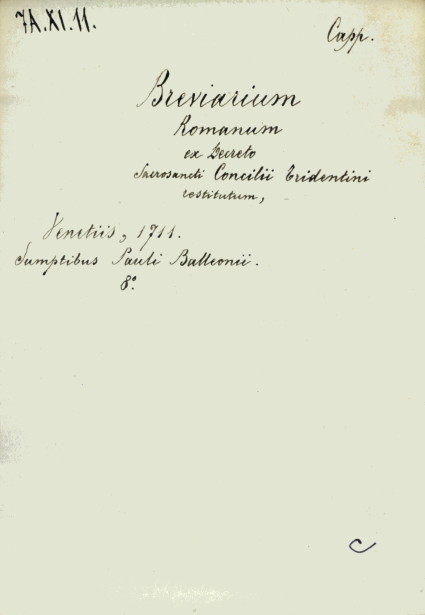 7A.XI.11.
Capp.
Breviarium
Romanum
ex Decreto
Sacrosancti Concilii Tridentini
restitutum,
Venetiis, 1711.
Sumptibus Pauli Balleonii.
8°
C